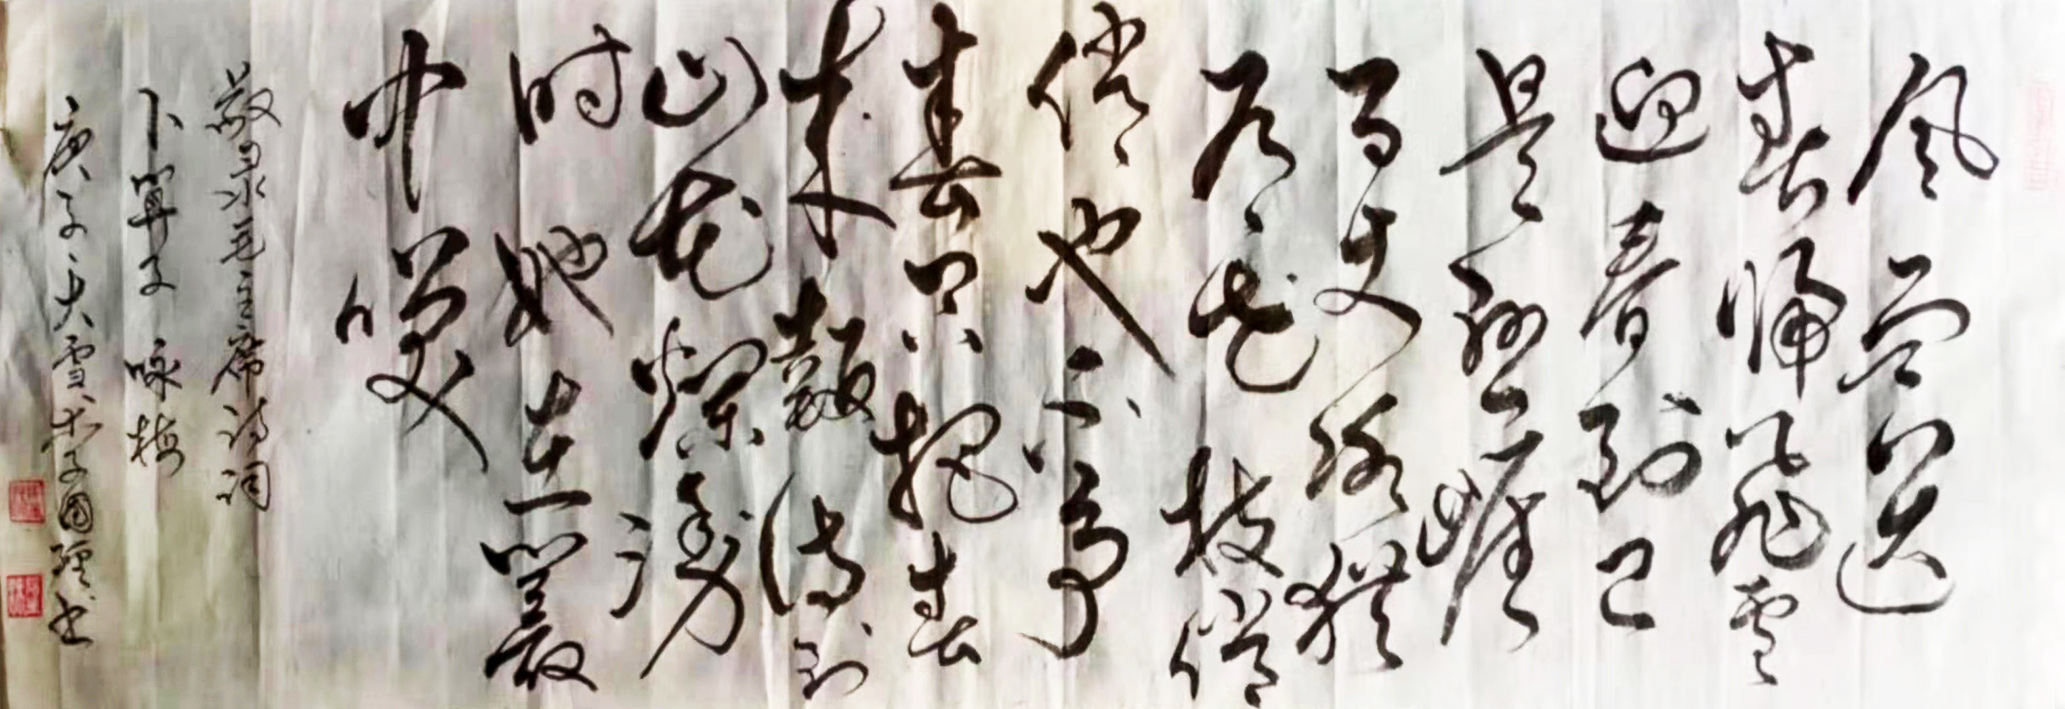 风雨送
春歸飛雪
迎春到已
是懸崖
百丈冰猶
有花枝俏
俏也不争
春只把春
来報待到
山花爛漫
时她在叢
中笑
敬录毛主席诗词
卜算子咏梅
庚子大雪国强书